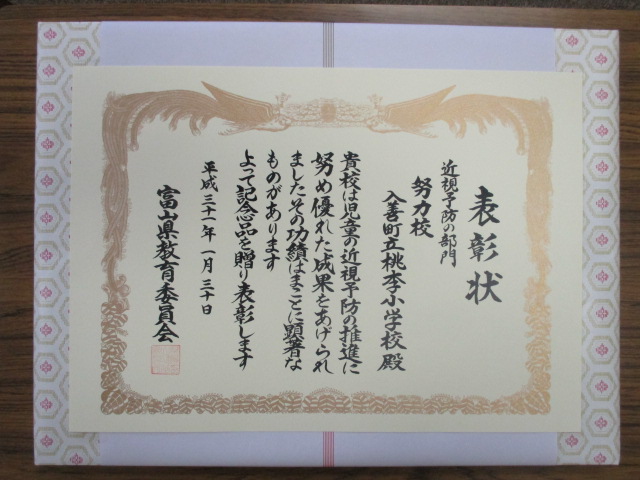 表彰状
近視予防の部門
努力校
入善町立桃李小学校殿
貴校は児童の近視予防の推進に
努め優れた成果をあげられ
ましたその功績はまことに顕著な
ものがあります
よって記念品を贈り表彰します
平成三十一年一月三十日
富山県教育委員会